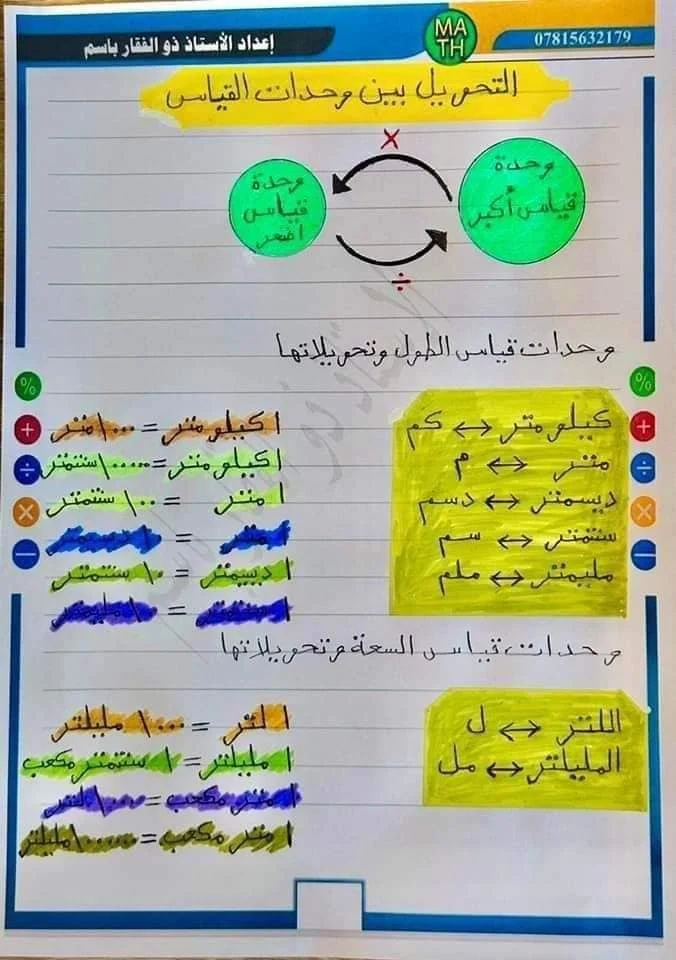 إعداد الأستاذ ذو الفقار باسم
MA
TH
07815632179
التحويل بين وحدات القياس
×
وحدة
قياس أكبر
وحدة
قياس
اصغر
÷
وحدات قياس الطول وتحويلاتها
كيلو متر ↔ كم
متر ↔ م
ديسمتر ↔ دسم
سنتمتر ↔ سم
مليمتر ↔ ملم
١ كيلو متر = ١٠٠٠ متر
١ كيلو متر = ١٠٠٠٠٠ سنتمتر
١ متر = ١٠٠ سنتمتر
١ متر = ١٠ ديسمتر
١ ديسمتر = ١٠ سنتمتر
١ سنتمتر = ١٠ مليمتر
وحدات قياس السعة وتحويلاتها
اللتر ↔ ل
المليلتر ↔ مل
١ لتر = ١٠٠٠ مليلتر
١ مليلتر = ١ سنتمتر مكعب
١ متر مكعب = ١٠٠٠ لتر
١ متر مكعب = ١٠٠٠٠٠٠ مليلتر